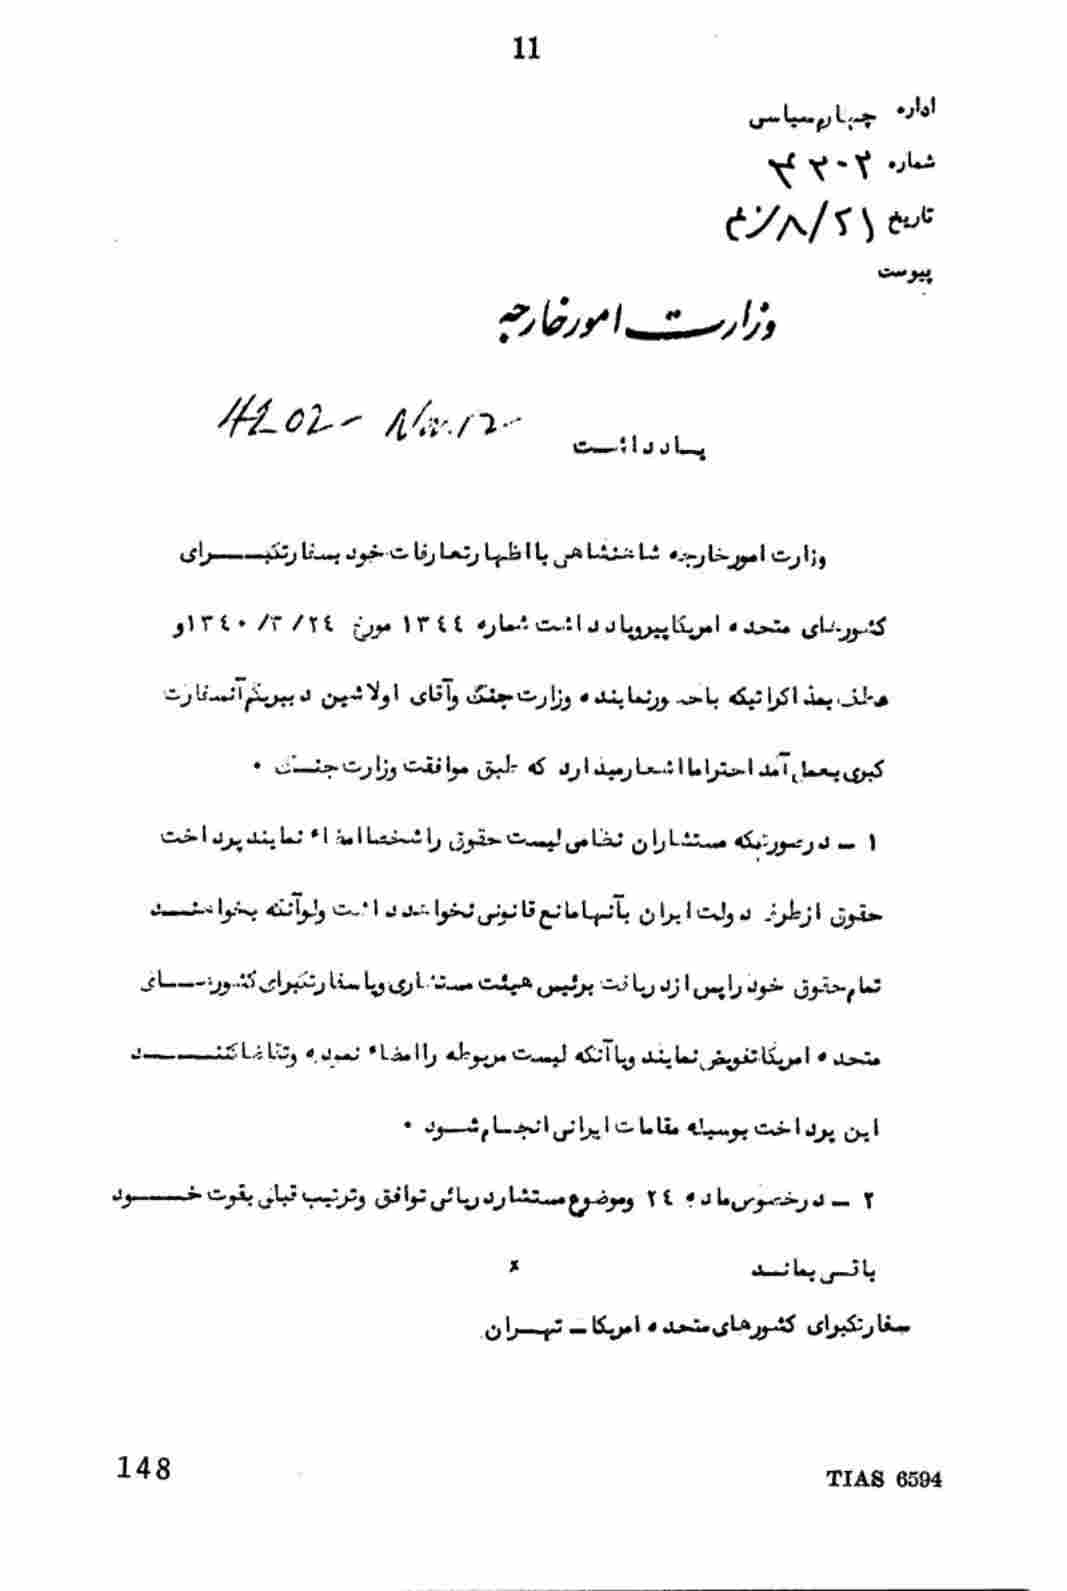 11
اداره چهارم سیاسی
شماره ۴۲۰۲
تاریخ ۲۱/۸/
پیوست
وزارت امور خارجه
4202 - Nov. 12 -
یادداشت
وزارت امور خارجه شاهنشاهی با اظهار تعارفات خود بسفارتکبرای
کشورهای متحده امریکا پیرو یادداشت شماره ۱۳۴۴ مورخ ۲۴/۳/۱۳۴۰ و
عطف بمذاکراتیکه با حضور نماینده وزارت جنگ و آقای اولاشین دبیر یکم آنسفارت
کبری بعمل آمد احتراما اشعار میدارد که طبق موافقت وزارت جنگ .
۱ - در صورتیکه مستشاران نظامی لیست حقوق را شخصا امضاء نمایند پرداخت
حقوق از طرف دولت ایران بآنها مانع قانونی نخواهد داشت ولو آنکه بخواهند
تمام حقوق خود را پس از دریافت برئیس هیئت مستشاری و یا سفارتکبرای کشورهای
متحده امریکا تفویض نمایند و یا آنکه لیست مربوطه را امضاء نموده و تقاضا کنند
این پرداخت بوسیله مقامات ایرانی انجام شود .
۲ - در خصوص ماده ۲۴ و موضوع مستشار دریائی توافق و ترتیب قبلی بقوت خود
باقی بماند x
سفارتکبرای کشورهای متحده امریکا - تهران
148
TIAS 6594